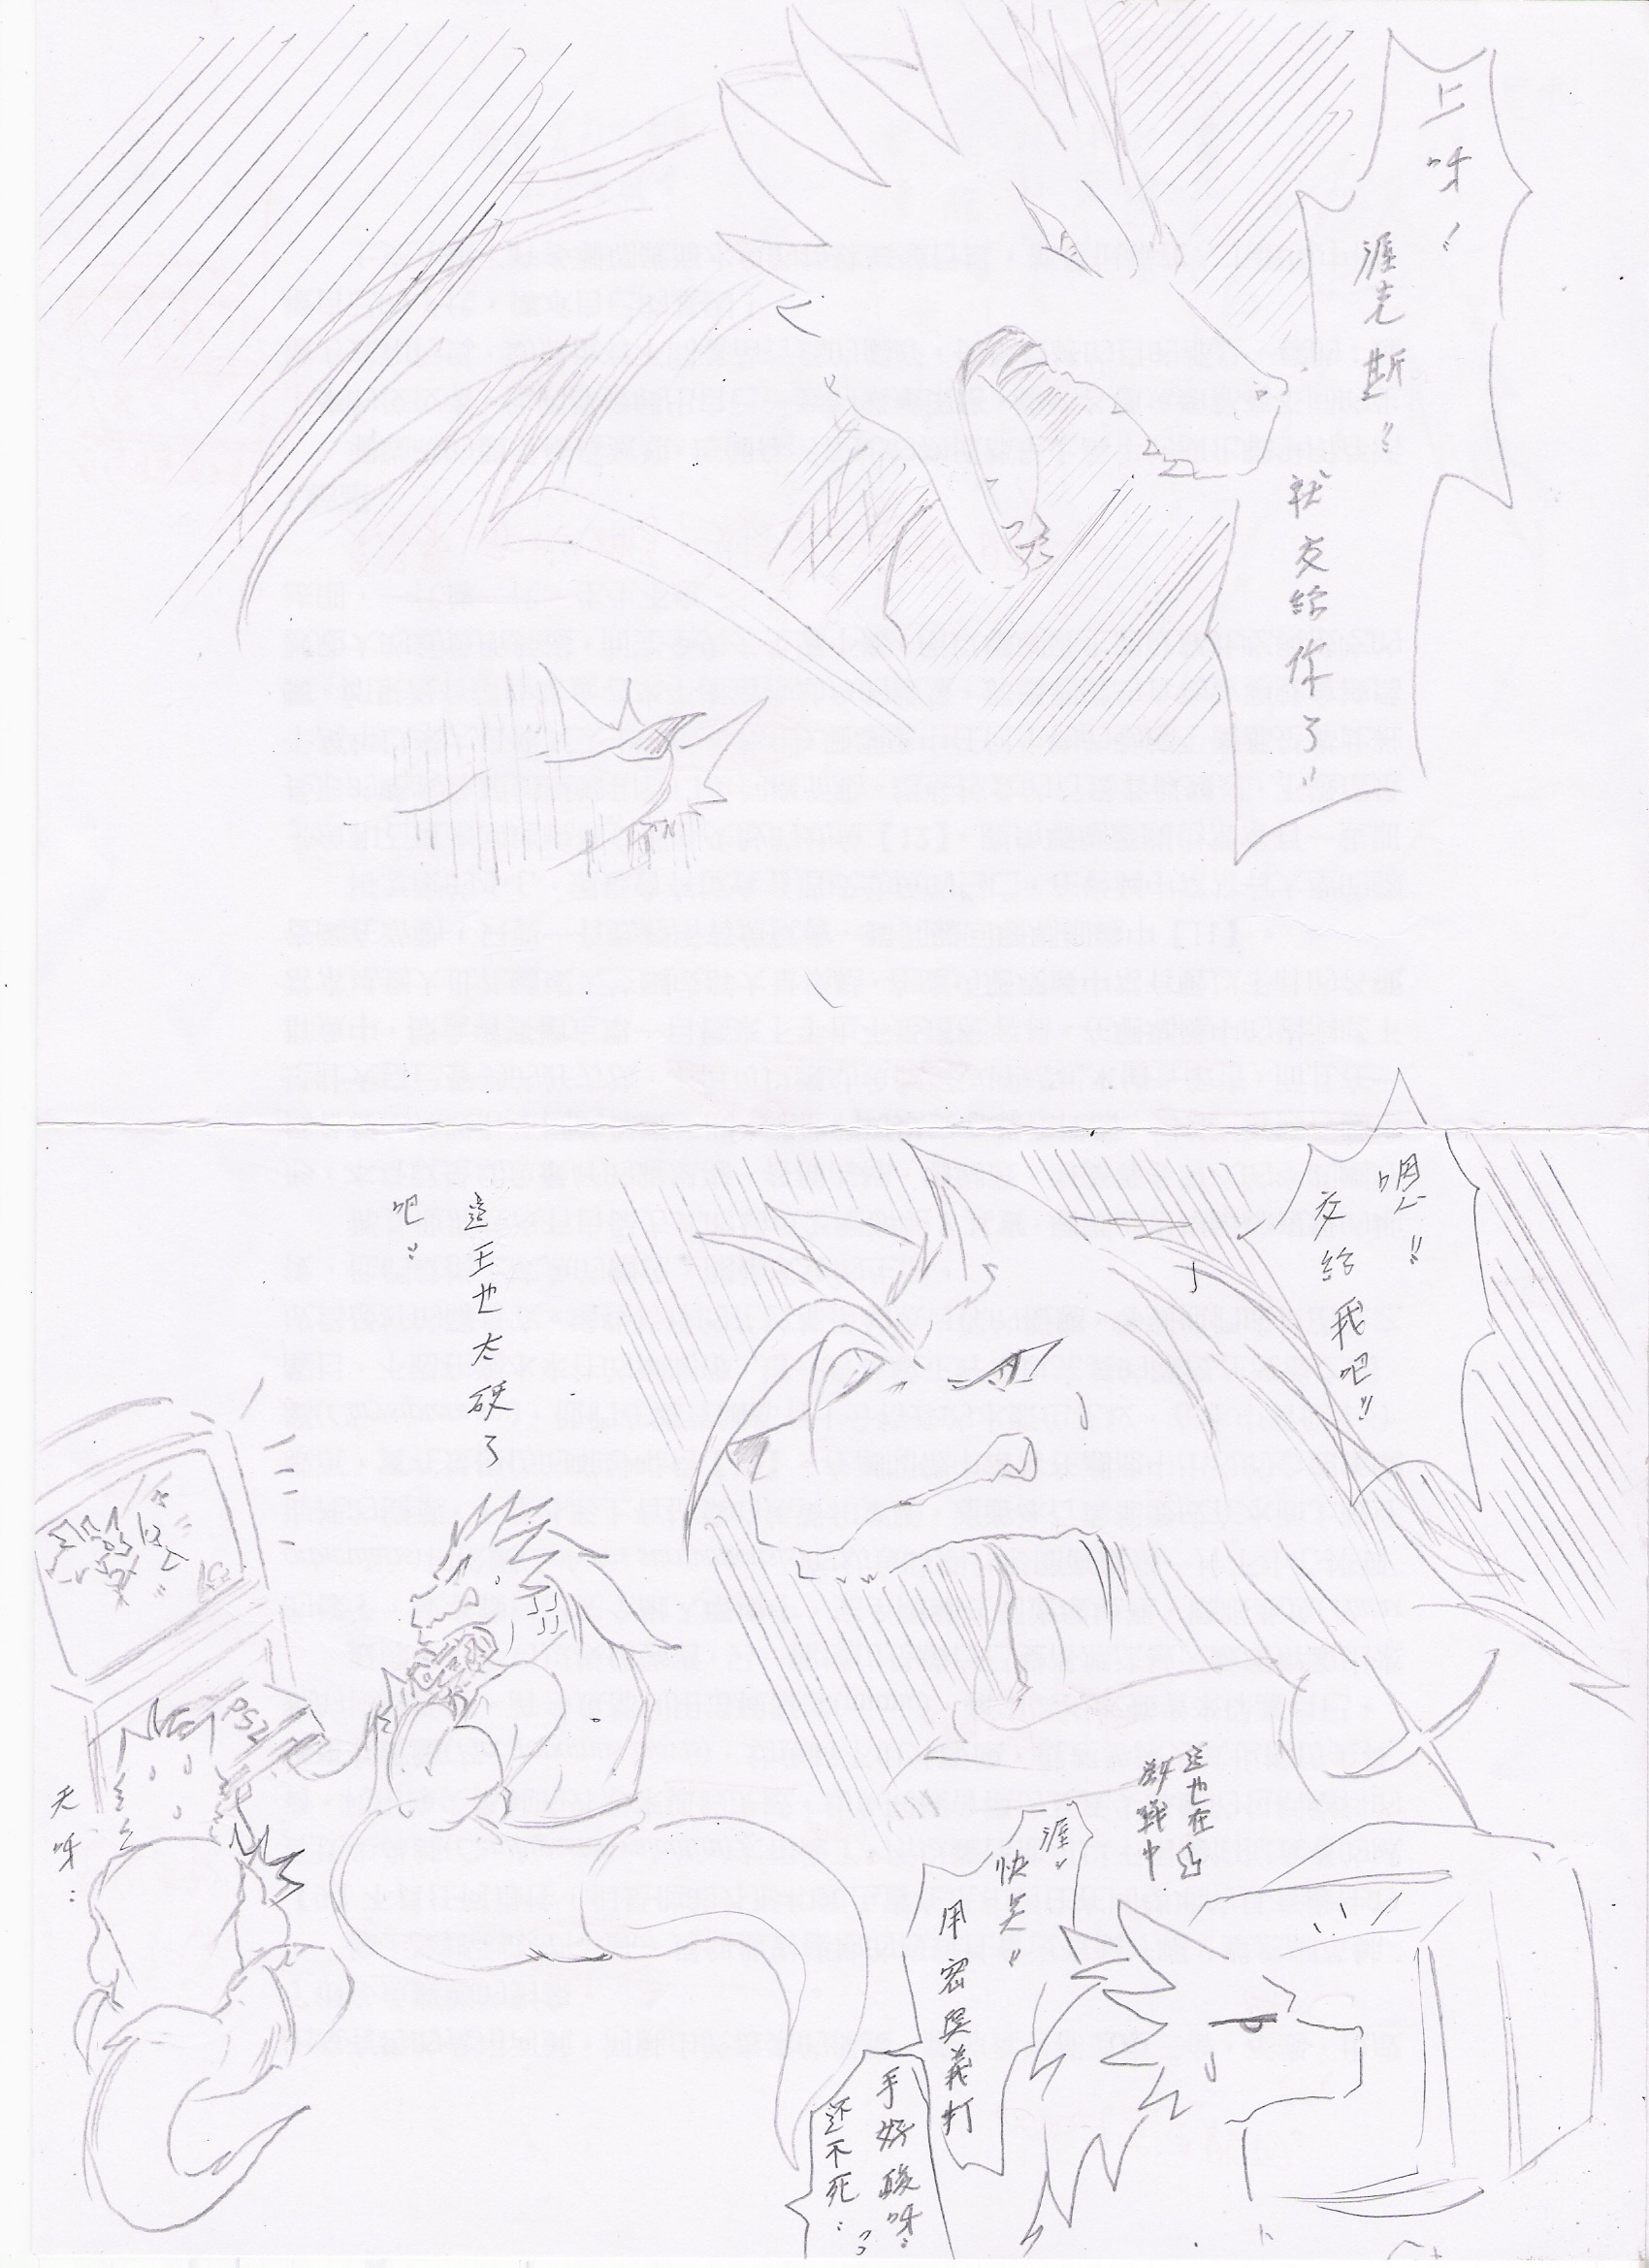 上呀!!
涯克斯!!
就交給你了!!
嗯!!
交給我吧!!
這王也太硬了
吧::
PS2
天呀::
這也在
激戰中
涯!!
快点!!
用密奧義打
手好酸呀::
还不死::